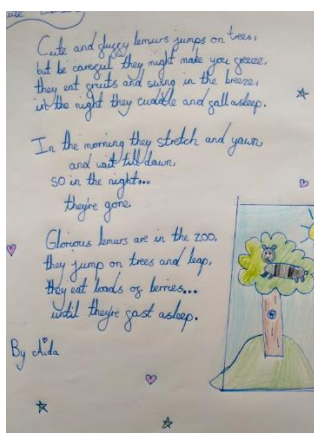 Cute Lemurs
Cute and fluffy lemurs jumps on trees,
but be careful they might make you freeze,
they eat fruits and swing in the breeze,
in the night they cuddle and fall asleep.
In the morning they stretch and yawn,
and wait till dawn,
so in the night...
they're gone.
Glorious lemurs are in the zoo,
they jump on trees and leap,
they eat loads of berries...
until they're fast asleep.
By Aida